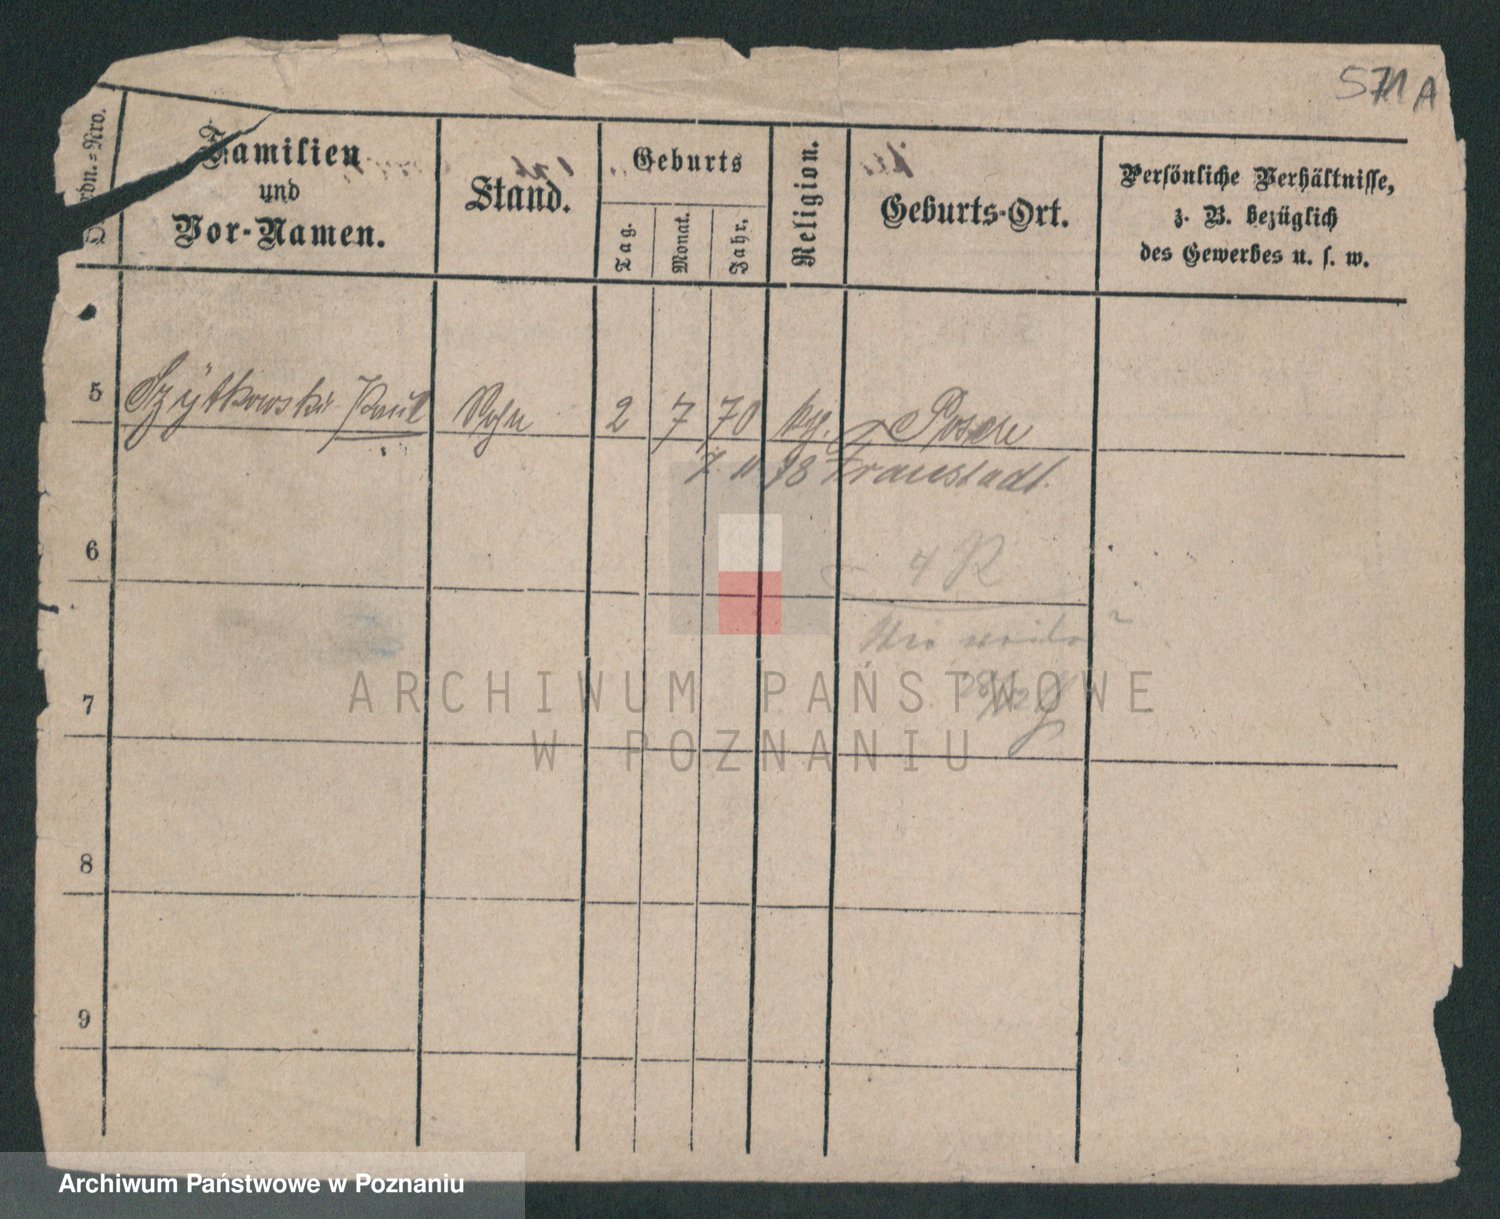 571 A
Ordn.=Nro.
Familien
und
Vor-Namen.
Stand.
Geburts
Tag.
Monat.
Jahr.
Religion.
Geburts-Ort.
Persönliche Verhältnisse,
z. B. bezüglich
des Gewerbes u. s. w.
5 Szÿtkowski Paul Sohn 2 7 70 Posen
7. 11 78 Fraustadt.
6
4 R
7
8
9
ARCHIWUM PAŃSTWOWE
W POZNANIU
Archiwum Państwowe w Poznaniu